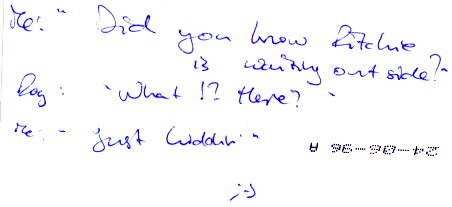 Me: " Did you know Ritchie
is waiting outside?"
Roy: "What !? Here?"
Me: " Just kiddin' "
24-06-96 A
;-)